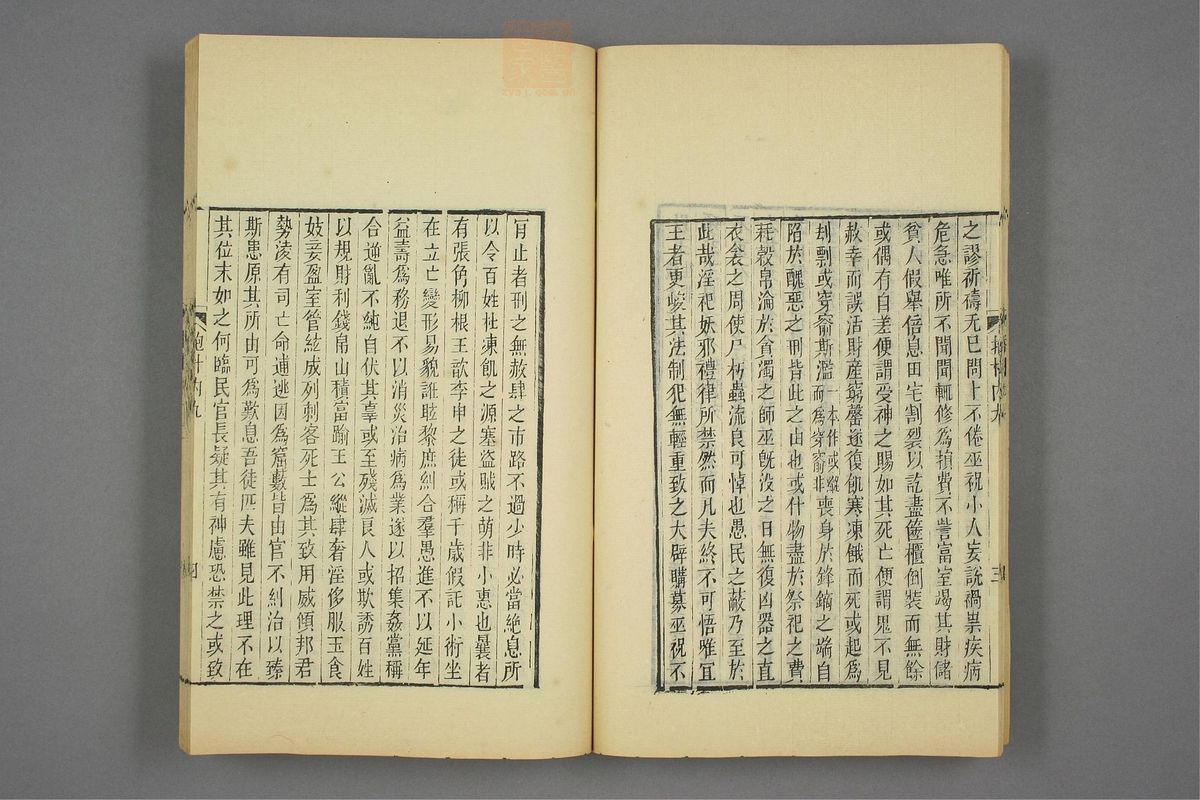 之謬祈禱无已問卜不倦巫祝小人妄說禍祟疾病
危急唯所不聞聞輒修為損費不訾富室竭其財儲
貧人假舉倍息田宅割裂以訖盡篋櫃倒裝而無餘
或偶有自差便謂受神之賜如其死亡便謂鬼不見
赦幸而誤活財產窮罄遂復飢寒凍餓而死或起為
刦剽或穿窬斯濫一本作或濫而為穿窬非喪身於鋒鏑之端自
陷於醜惡之刑皆此之由也或什物盡於祭祀之費
耗穀帛淪於貪濁之師巫旣沒之日無復凶器之直
衣衾之周使尸朽蟲流良可悼也愚民之蔽乃至於
此哉淫祀妖邪禮律所禁然而凡夫終不可悟唯宜
王者更峻其法制犯無輕重致之大辟購募巫祝不
抱朴內九
三
肯止者刑之無赦肆之市路不過少時必當絕息所
以令百姓杜凍飢之源塞盜賊之萌非小惠也曩者
有張角柳根王歆李申之徒或稱千歲假託小術坐
在立亡變形易貌誑眩黎庶糾合羣愚進不以延年
益壽為務退不以消災治病為業遂以招集姦黨稱
合逆亂不純自伏其辜或至殘滅良人或欺誘百姓
以規財利錢帛山積富踰王公縱肆奢淫侈服玉食
妓妾盈室管絃成列刺客死士為其致用威傾邦君
勢凌有司亡命逋逃因為窟藪皆由官不糾治以臻
斯患原其所由可為歎息吾徒匹夫雖見此理不在
其位末如之何臨民官長疑其有神慮恐禁之或致
抱朴內九
四